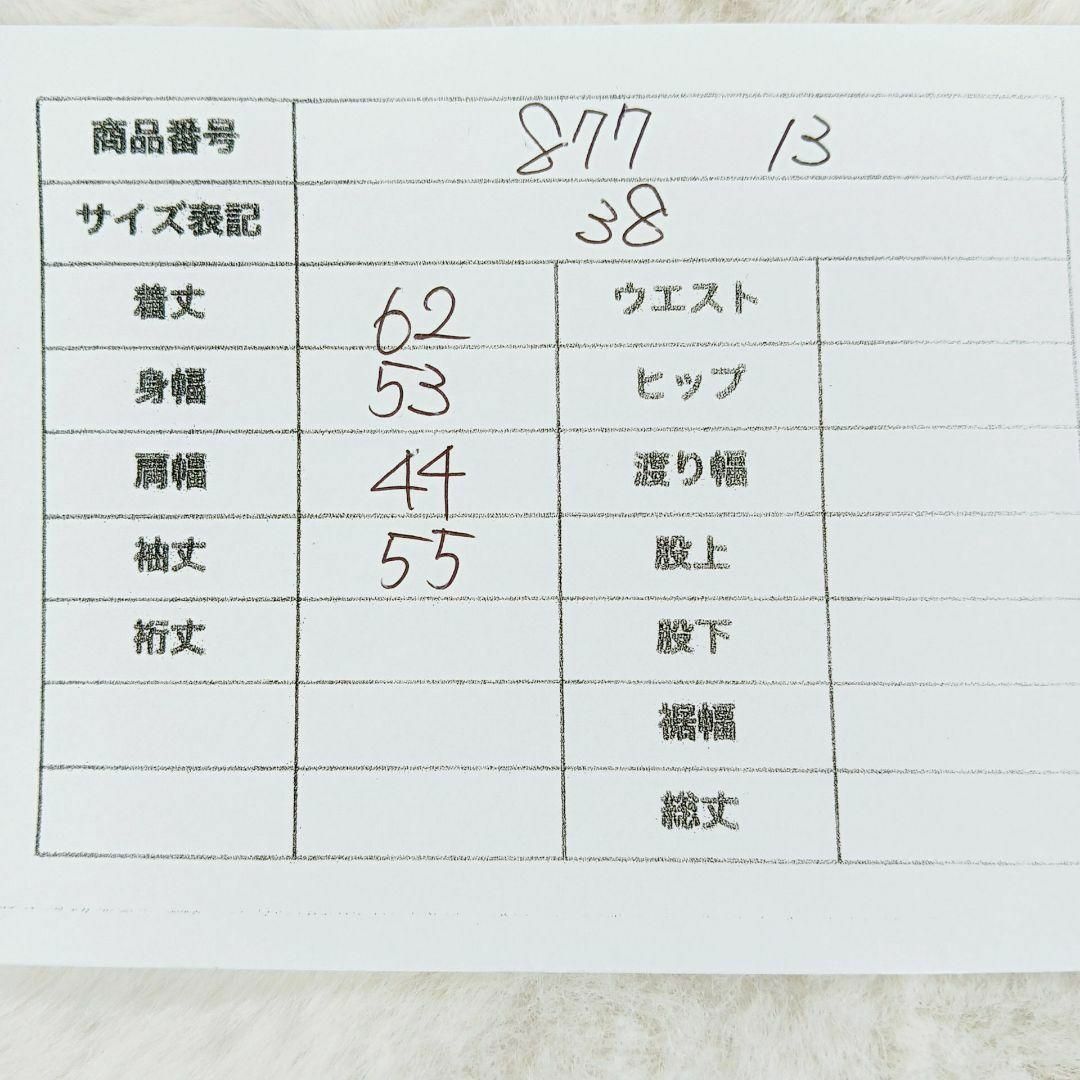 商品番号 877 13
サイズ表記 38
着丈 62 ウエスト
身幅 53 ヒップ
肩幅 44 渡り幅
袖丈 55 股上
裄丈 股下
裾幅
総丈